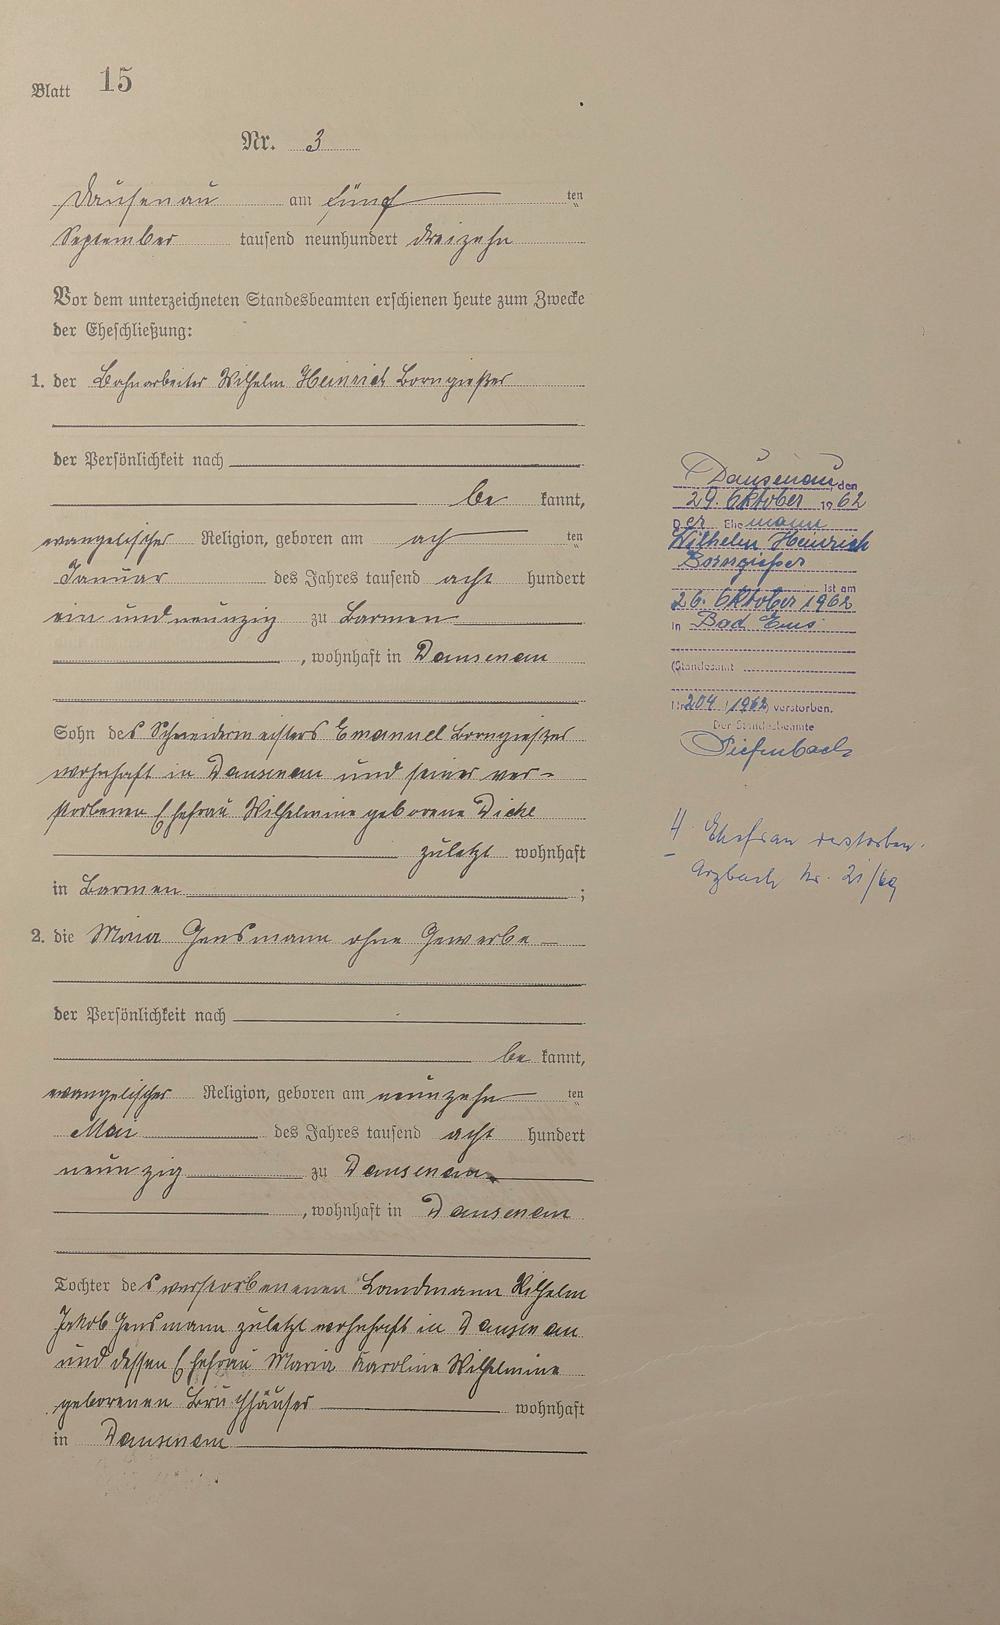 Blatt 15
Nr. 3
Dausenau am fünf ten
September tausend neunhundert dreizehn
Vor dem unterzeichneten Standesbeamten erschienen heute zum Zwecke
der Eheschließung:
1. der Bahnarbeiter Wilhelm Heinrich Borngießer
der Persönlichkeit nach
be kannt,
evangelischer Religion, geboren am ach ten
Januar des Jahres tausend acht hundert
ein und neunzig zu Barmen
, wohnhaft in Dausenau
Sohn des Schneidermeisters Emanuel Borngießer
wohnhaft in Dausenau und seiner ver-
storbenen Ehefrau Wilhelmine geborene Dicke
zuletzt wohnhaft
in Barmen ;
2. die Mina Gensmann ohne Gewerbe
der Persönlichkeit nach
be kannt,
evangelischer Religion, geboren am neunzehn ten
Mai des Jahres tausend acht hundert
neunzig zu Dausenau
, wohnhaft in Dausenau
Tochter des verstorbenenen Landmann Wilhelm
Jakob Gensmann zuletzt wohnhaft in Dausenau
und dessen Ehefrau Maria Karoline Wilhelmine
geborenen Bruchhäuser wohnhaft
in Dausenau
Dausenau, den
29. Oktober 1962
Der Ehemann
Wilhelm Heinrich
Borngießer
ist am
26. Oktober 1962
in Bad Ems
(Standesamt
Nr. 204 / 1962) verstorben.
Der Standesbeamte
Diefenbach
H Ehefrau verstorben.
Arzbach Nr. 21/69